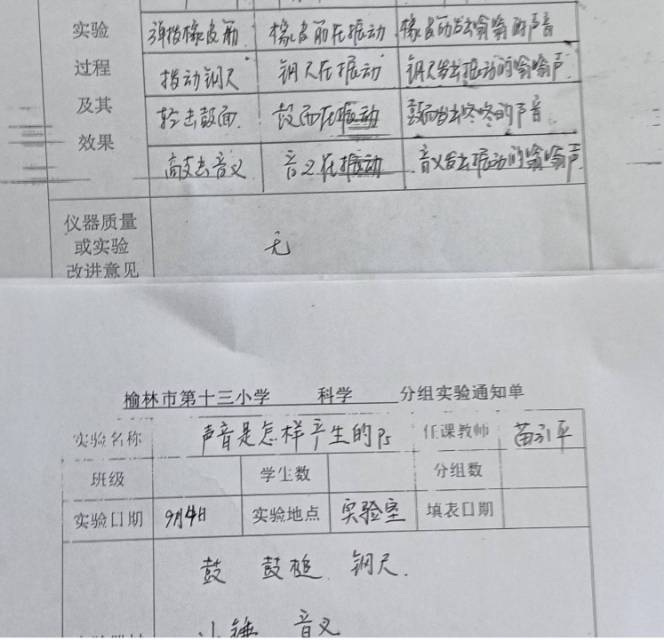 实验 弹拨橡皮筋 橡皮筋在振动 橡皮筋发出嗡嗡的声音
过程 拨动钢尺 钢尺在振动 钢尺发出振动的嗡嗡声
及其 轻击鼓面 鼓面在振动 鼓面发出咚咚的声音
效果 敲击音义 音义在振动 音义发出振动的嗡嗡声
仪器质量
或实验 无
改进意见
榆林市第十三小学 科学 分组实验通知单
实验名称 声音是怎样产生的 任课教师
班级 学生数 分组数
实验日期 9月4日 实验地点 实验室 填表日期
鼓 鼓槌 钢尺.
小锤 音义